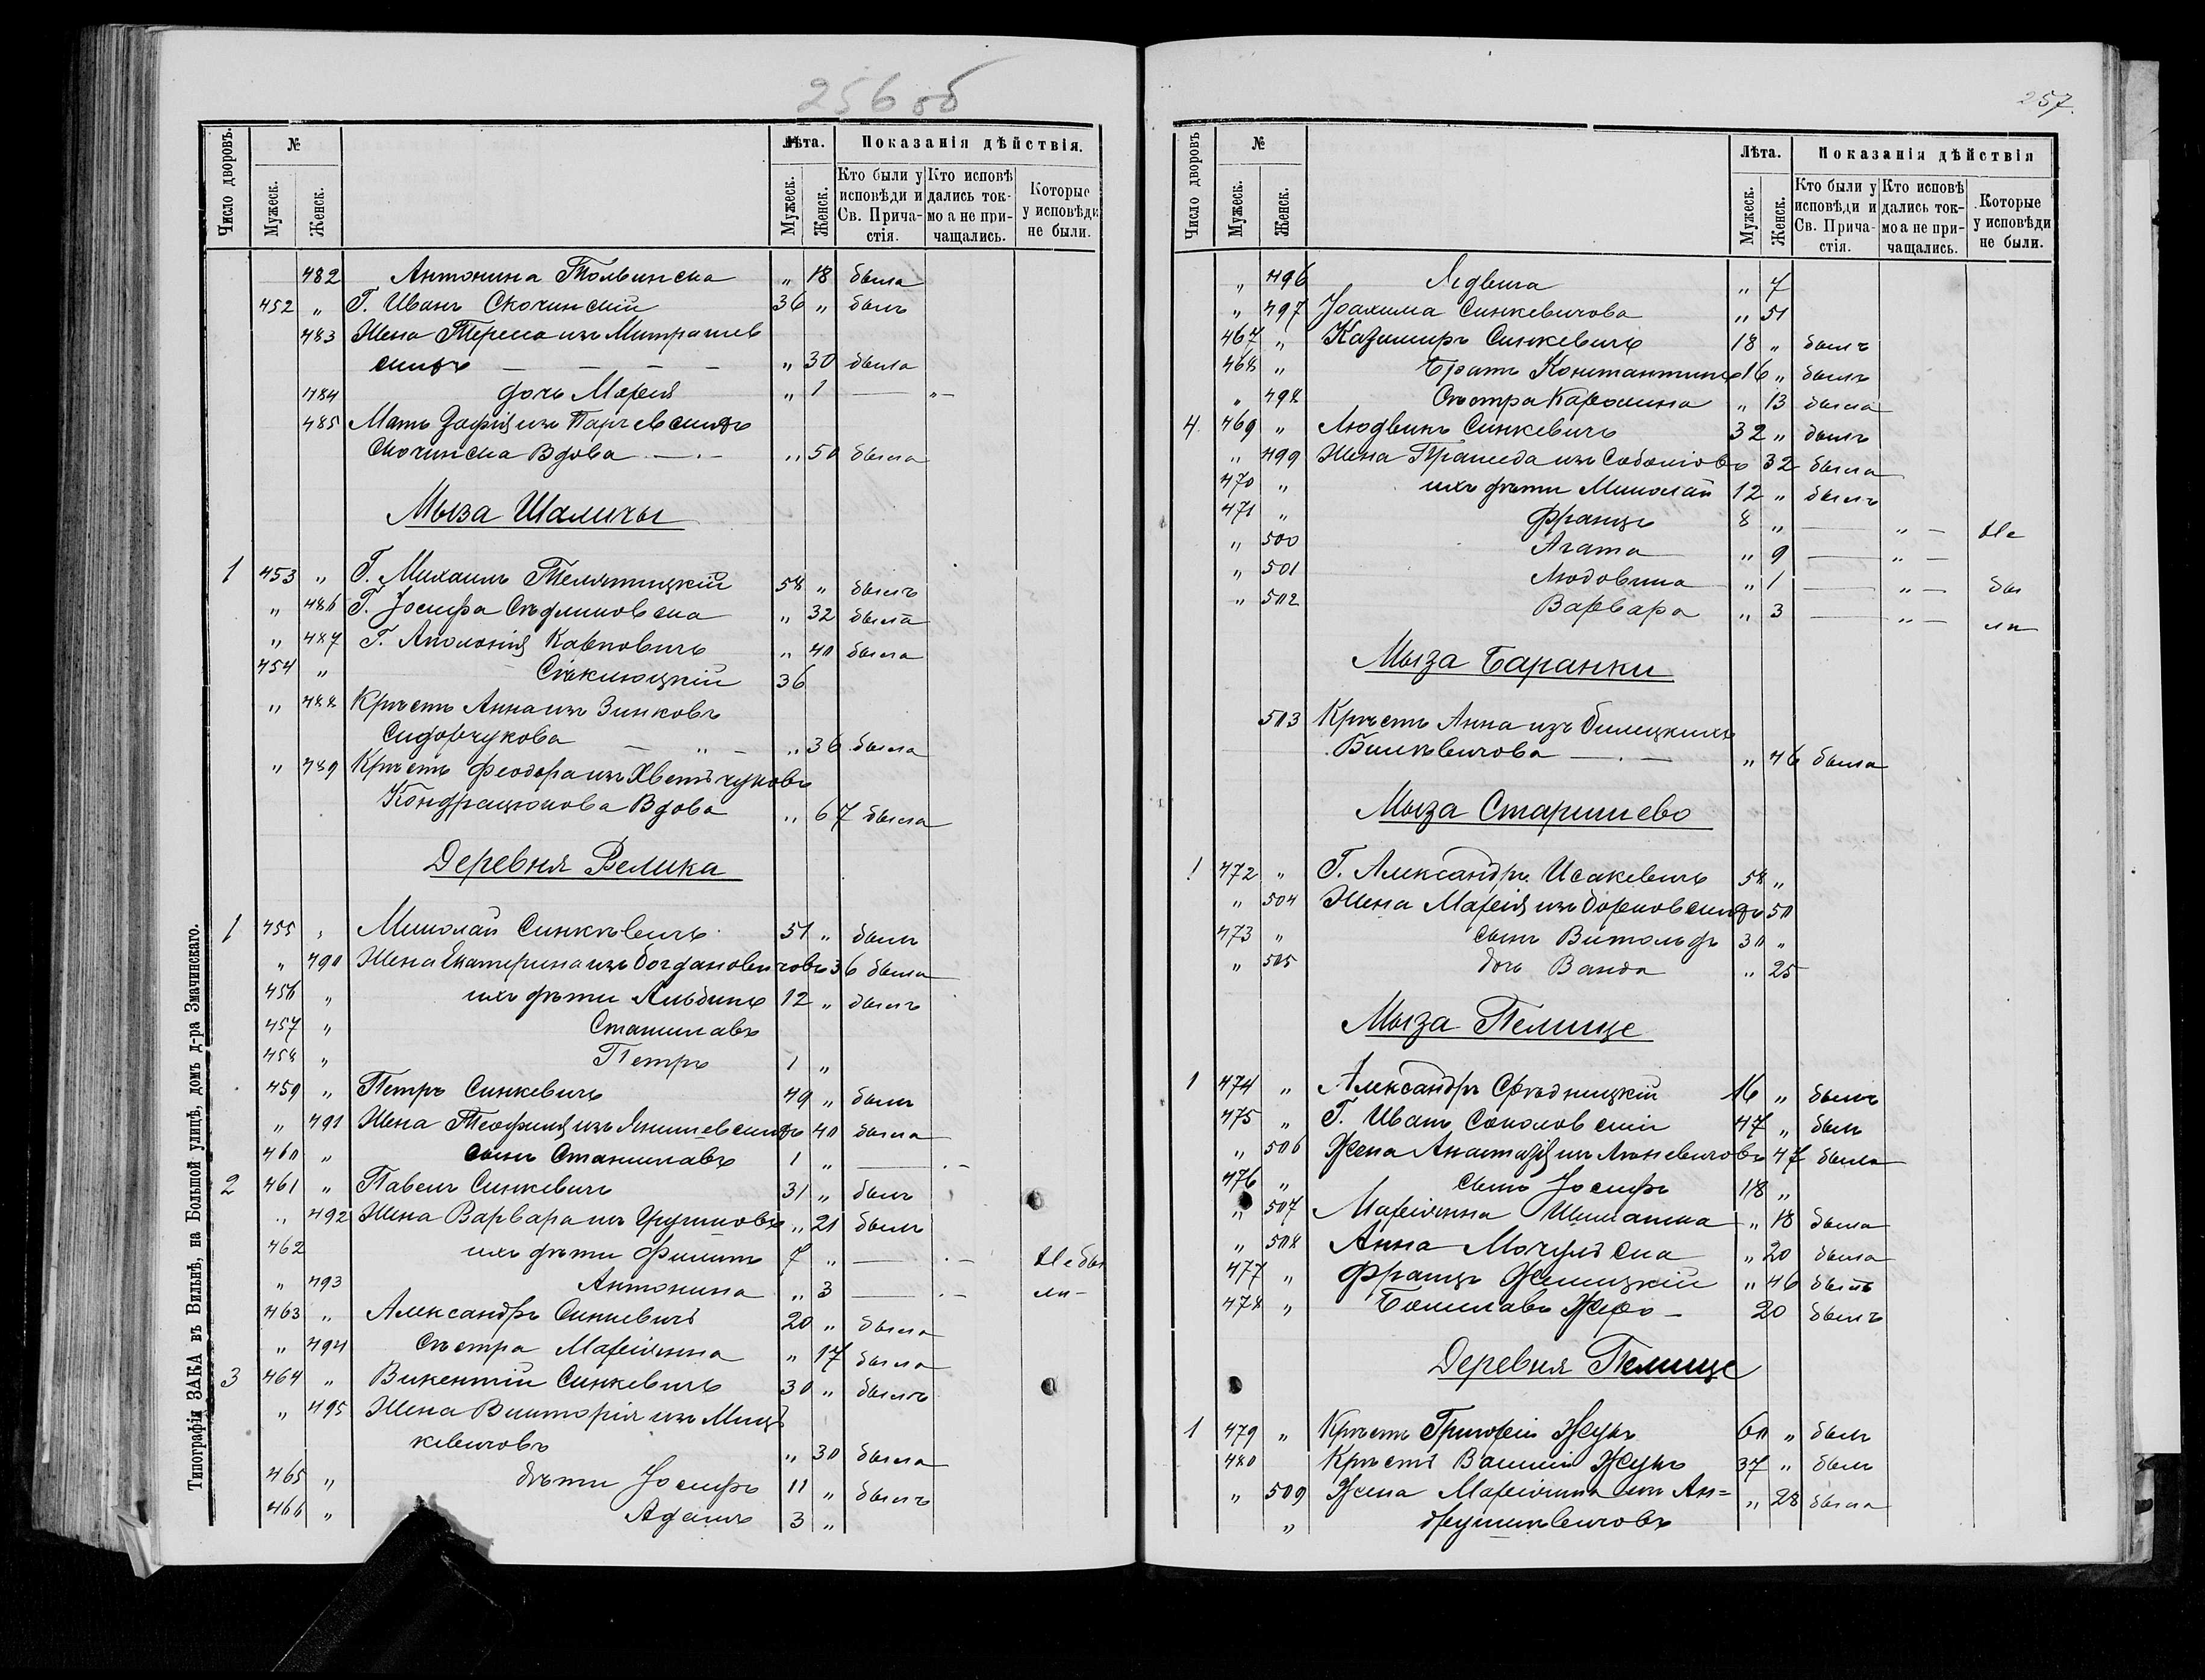 256об
Число дворовъ. № Лѣта. Показанія дѣйствія.
Мужеск. Женск. Мужеск. Женск. Кто были у исповѣди и Св. Причастія. Кто исповѣдались токмо а не причащались. Которые у исповѣди не были.
482 Антонина Толвинска „ 18 была
452 „ Г. Иванъ Скочинскій 36 „ былъ
483 Жена Тереса изъ Митрашев
скихъ — — — — „ 30 была
484 дочь Марія „ 1 — „ —
485 Мать Зофія изъ Парчевскихъ
Скочинска Вдова — . — „ 50 была
Мыза Шаличы
1 453 „ Г. Михаилъ Телятицкій 58 „ былъ
„ 486 Г. Іосифа Сѣдликовска „ 32 была
„ 487 Г. Аполонія Карповичъ „ 40 была
454 „ 36
„ 488 Крѣст Анна изъ Зинковъ
Сидорчукова — „ — „ 36 была
„ 489 Крѣст Феодора изъ Хветѣчуковъ
Кондрацюкова Вдова „ 67 была
Деревня Велика
1 455 „ Миколай Синкѣвичъ 51 „ былъ
„ 490 Жена Екатерина изъ Богдановичовъ 36 была
456 „ ихъ дѣти Альбинъ 12 „ былъ
457 „ Станиславъ
458 „ Петръ 1 „
459 „ Петръ Синкевичъ 49 „ былъ
„ 491 Жена Теофилія изъ Янишевскихъ 40 была
460 „ сынъ Станиславъ 1 „ — . —
2 461 „ Павелъ Синкевичъ 31 „ былъ
„ 492 Жена Варвара изъ „ 21 былъ
462 ихъ дѣти Филипъ 7 „ — . — Не бы
„ 493 Антонина „ 3 — . — ли —
463 „ Александръ Синкевичъ 20 „ была
„ 494 Сѣстра Маріянна „ 17 была
3 464 „ Викентій Синкевичъ 30 „ былъ
„ 495 Жена Викторія изъ Миц
кевичовъ „ 30 была
465 „ дѣти Іосифъ 11 „ былъ
466 „ Адамъ 3 „
Типографія ЗАКА въ Вильнѣ, на Большой улицѣ, домъ д-ра Змачинскаго.
257.
Число дворовъ. № Лѣта. Показанія дѣйствія
Мужеск. Женск. Мужеск. Женск. Кто были у исповѣди и Св. Причастія. Кто исповѣдались токмо а не причащались. Которые у исповѣди не были.
„ 496 Ядвига „ 7
„ 497 Іоахима Синкевичова „ 51
467 „ Казимиръ Синкевичъ 18 „ былъ
468 „ Братъ Константинъ 16 „ былъ
„ 498 Сѣстра Каролина „ 13 была
4 469 „ Людвикъ Синкевичъ 32 „ былъ
„ 499 Жена Пракседа изъ 32 была
470 „ ихъ дѣти Миколай 12 „ былъ
471 „ Францъ 8 „ — „ — Не
„ 500 Агата „ 9 — „ —
„ 501 Людовика „ 1 — „ — бы
„ 502 Варвара „ 3 — „ — ли
Мыза Баранки
503 Крѣст Анна изъ Билецкихъ
Вилкѣвичова — . — „ 46 была
Мыза Старишево
1 472 „ Г. Александръ Исакевичъ 58 „
„ 504 Жена Марія изъ Борковскихъ 50
473 „ сынъ Витольдъ 30 „
„ 505 доч Ванда „ 25
Мыза Пелище
1 474 „ Александръ Срѣдницкій 16 „ былъ
475 „ Г. Иванъ Соколовскій 47 „ былъ
„ 506 Жена Анастазія изъ 47 была
476 „ сынъ Іосифъ 18 „
„ 507 Маріянна „ 18 была
„ 508 Анна Мочульска „ 20 была
477 „ Францъ „ 46 былъ
478 „ Болиславъ 20 былъ
Деревня Пелище
1 479 „ Крѣст Григорій Жукъ 60 „ былъ
480 Крѣст Василій Жукъ 37 „ былъ
„ 509 Жена Маріянна изъ Ан= „ 28 была
„ друшкѣвичовъ